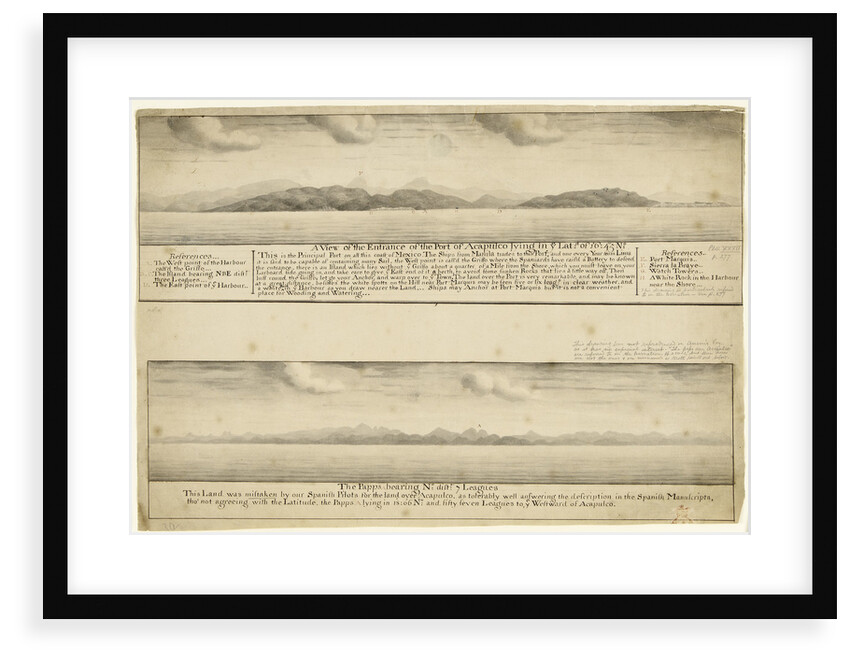 A View of the Entrance of the Port of Acapulco lying in ẙ Latᵈ of 16:45 Nº
References...
The West point of the Harbour
call'd the Griffo...
The Island bearing NbE distᵗ
three Leagues...
The East point of ẙ Harbour...
This is the Principal Port on all this coast of Mexico. The Ships from Manila trades to this Port, and one every Year from Lima
it is said to be capable of containing many Sail, the West point is call'd the Griffo where the Spaniards have raised a Battery to defend
the entrance, there is an Island which lies without ẙ Griffo about a quarter of a Mile from the Shore, which you must leave on your
Larboard side going in, and take care to give ẙ East end of it a berth, to avoid some sunken Rocks that lies a little way off. Then
luff round the Griffo, let go your Anchor, and warp over to ẙ Town. The land over the Port is very remarkable, and may be known
at a great distance, besides the white spotts on the Hill near Port Marquis may be seen five or six leagˢ in clear weather, and
ẙ Harbour as you draw nearer the Land... Ships may Anchor at Port Marquis but it is not a convenient
place for Wooding and Watering...
References...
Port Marquis...
Sierra la Brave...
Watch Towers...
A White Rock in the Harbour
near the Shore...
The Papps bearing Nº distᵗ 7 Leagues
This Land was mistaken by our Spanish Pilots for the land over Acapulco, as tolerably well answering the description in the Spanish Manuscripts,
tho' not agreeing with the Latitude, the Papps lying in 18:06 Nº and fifty seven Leagues to ẙ Westward of Acapulco.